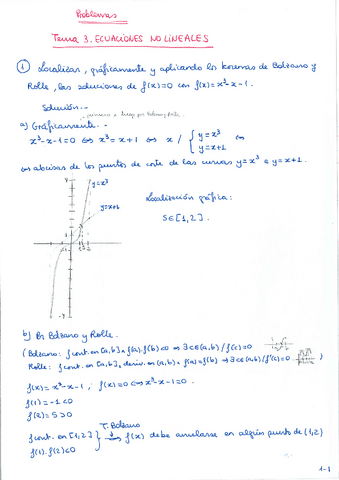 Problemas
Tema 3. ECUACIONES NO LINEALES
① Localizar, gráficamente y aplicando los teoremas de Bolzano y
Rolle, las soluciones de f(x)=0 con f(x)=x³-x-1.
Solución.-
a) Gráficamente.-
x³-x-1=0 ⇔ x³=x+1 ⇔ x / { y=x³ ⇔
y=x+1
⇔ abcisas de los puntos de corte de las curvas y=x³ e y=x+1.
y
y=x³
y=x+1
Localización gráfica:
S∈[1,2].
-y
b) Por Bolzano y Rolle.
(Bolzano: f cont. en [a,b] ∧ f(a)·f(b)<0 ⇒ ∃c∈(a,b) / f(c)=0
Rolle: f cont. en [a,b], deriv. en (a,b) ∧ f(a)=f(b) ⇒ ∃c∈(a,b) / f'(c)=0 )
f(x)=x³-x-1 ; f(x)=0 ⇔ x³-x-1=0.
f(1)=-1<0
f(2)=5>0
T. Bolzano
f cont. en [1,2] } ⇒ f(x) debe anularse en algún punto de (1,2)
f(1)·f(2)<0
1-1